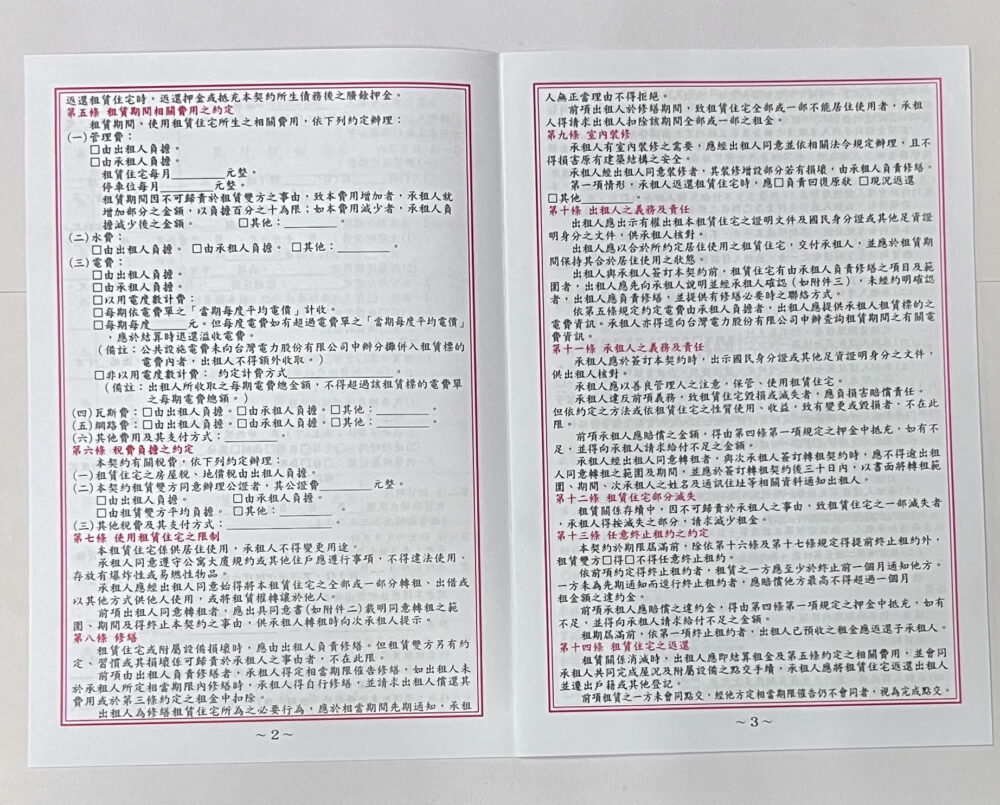 返還租賃住宅時，返還押金或抵充本契約所生債務後之賸餘押金。
第五條 租賃期間相關費用之約定
租賃期間，使用租賃住宅所生之相關費用，依下列約定辦理：
(一)管理費：
□由出租人負擔。
□由承租人負擔。
租賃住宅每月＿＿＿＿元整。
停車位每月＿＿＿＿元整。
租賃期間因不可歸責於租賃雙方之事由，致本費用增加者，承租人就
增加部分之金額，以負擔百分之十為限；如本費用減少者，承租人負
擔減少後之金額。 □其他：＿＿＿＿。
(二)水費：
□由出租人負擔。 □由承租人負擔。 □其他：＿＿＿＿。
(三)電費：
□由出租人負擔。
□由承租人負擔。
□以用電度數計費：
□每期依電費單之「當期每度平均電價」計收。
□每期每度＿＿＿元。但每度電費如有超過電費單之「當期每度平均電價」
，應於結算時退還溢收電費。
(備註：公共設施電費未向台灣電力股份有限公司申辦分攤併入租賃標的
電費內者，出租人不得額外收取。)
□非以用電度數計費： 約定計費方式＿＿＿＿＿＿。
(備註：出租人所收取之每期電費總金額，不得超過該租賃標的電費單
之每期電費總額。)
(四)瓦斯費：□由出租人負擔。□由承租人負擔。□其他：＿＿＿＿。
(五)網路費：□由出租人負擔。□由承租人負擔。□其他：＿＿＿＿。
(六)其他費用及其支付方式：＿＿＿＿。
第六條 稅費負擔之約定
本契約有關稅費，依下列約定辦理：
(一)租賃住宅之房屋稅、地價稅由出租人負擔。
(二)本契約租賃雙方同意辦理公證者，其公證費＿＿＿＿元整。
□由出租人負擔。 □由承租人負擔。
□由租賃雙方平均負擔。 □其他：＿＿＿＿。
(三)其他稅費及其支付方式：＿＿＿＿＿＿＿＿。
第七條 使用租賃住宅之限制
本租賃住宅係供居住使用，承租人不得變更用途。
承租人同意遵守公寓大廈規約或其他住戶應遵行事項，不得違法使用、
存放有爆炸性或易燃性物品。
承租人應經出租人同意始得將本租賃住宅之全部或一部分轉租、出借或
以其他方式供他人使用，或將租賃權轉讓於他人。
前項出租人同意轉租者，應出具同意書(如附件二)載明同意轉租之範
圍、期間及得終止本契約之事由，供承租人轉租時向次承租人提示。
第八條 修繕
租賃住宅或附屬設備損壞時，應由出租人負責修繕。但租賃雙方另有約
定、習慣或其損壞係可歸責於承租人之事由者，不在此限。
前項由出租人負責修繕者，承租人得定相當期限催告修繕，如出租人未
於承租人所定相當期限內修繕時，承租人得自行修繕，並請求出租人償還其
費用或於第三條約定之租金中扣除。
出租人為修繕租賃住宅所為之必要行為，應於相當期間先期通知，承租
～2～
人無正當理由不得拒絕。
前項出租人於修繕期間，致租賃住宅全部或一部不能居住使用者，承租
人得請求出租人扣除該期間全部或一部之租金。
第九條 室內裝修
承租人有室內裝修之需要，應經出租人同意並依相關法令規定辦理，且不
得損害原有建築結構之安全。
承租人經出租人同意裝修者，其裝修增設部分若有損壞，由承租人負責修繕。
第一項情形，承租人返還租賃住宅時，應□負責回復原狀 □現況返還
□其他＿＿＿＿＿。
第十條 出租人之義務及責任
出租人應出示有權出租本租賃住宅之證明文件及國民身分證或其他足資證
明身分之文件，供承租人核對。
出租人應以合於所約定居住使用之租賃住宅，交付承租人，並應於租賃期
間保持其合於居住使用之狀態。
出租人與承租人簽訂本契約前，租賃住宅有由承租人負責修繕之項目及範
圍者，出租人應先向承租人說明並經承租人確認（如附件三），未經約明確認
者，出租人應負責修繕，並提供有修繕必要時之聯絡方式。
依第五條規定約定電費由承租人負擔者，出租人應提供承租人租賃標的之
電費資訊。承租人亦得逕向台灣電力股份有限公司申辦查詢租賃期間之有關電
費資訊。
第十一條 承租人之義務及責任
承租人應於簽訂本契約時，出示國民身分證或其他足資證明身分之文件，
供出租人核對。
承租人應以善良管理人之注意，保管、使用租賃住宅。
承租人違反前項義務，致租賃住宅毀損或滅失者，應負損害賠償責任。
但依約定之方法或依租賃住宅之性質使用、收益，致有變更或毀損者，不在此
限。
前項承租人應賠償之金額，得由第四條第一項規定之押金中抵充，如有不
足，並得向承租人請求給付不足之金額。
承租人經出租人同意轉租者，與次承租人簽訂轉租契約時，應不得逾出租
人同意轉租之範圍及期間，並應於簽訂轉租契約後三十日內，以書面將轉租範
圍、期間、次承租人之姓名及通訊住址等相關資料通知出租人。
第十二條 租賃住宅部分滅失
租賃關係存續中，因不可歸責於承租人之事由，致租賃住宅之一部滅失者
，承租人得按滅失之部分，請求減少租金。
第十三條 任意終止租約之約定
本契約於期限屆滿前，除依第十六條及第十七條規定得提前終止租約外，
租賃雙方□得□不得任意終止租約。
依前項約定得終止租約者，租賃之一方應至少於終止前一個月通知他方。
一方未為先期通知而逕行終止租約者，應賠償他方最高不得超過一個月
租金額之違約金。
前項承租人應賠償之違約金，得由第四條第一項規定之押金中抵充，如有
不足，並得向承租人請求給付不足之金額。
租期屆滿前，依第一項終止租約者，出租人已預收之租金應返還予承租人。
第十四條 租賃住宅之返還
租賃關係消滅時，出租人應即結算租金及第五條約定之相關費用，並會同
承租人共同完成屋況及附屬設備之點交手續，承租人應將租賃住宅返還出租人
並遷出戶籍或其他登記。
前項租賃之一方未會同點交，經他方定相當期限催告仍不會同者，視為完成點交。
～3～